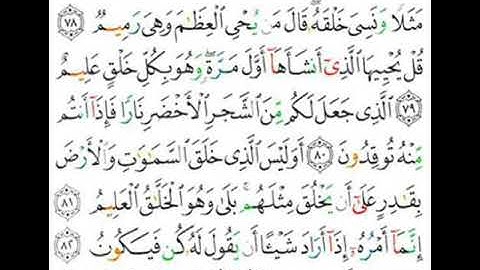 مَثَلًا وَنَسِىَ خَلْقَهُۥ ۖ قَالَ مَن يُحْىِ ٱلْعِظَٰمَ وَهِىَ رَمِيمٌ ٧٨
قُلْ يُحْيِيهَا ٱلَّذِىٓ أَنشَأَهَآ أَوَّلَ مَرَّةٍ ۖ وَهُوَ بِكُلِّ خَلْقٍ عَلِيمٌ
٧٩ ٱلَّذِى جَعَلَ لَكُم مِّنَ ٱلشَّجَرِ ٱلْأَخْضَرِ نَارًا فَإِذَآ أَنتُم
مِّنْهُ تُوقِدُونَ ٨٠ أَوَلَيْسَ ٱلَّذِى خَلَقَ ٱلسَّمَٰوَٰتِ وَٱلْأَرْضَ
بِقَٰدِرٍ عَلَىٰٓ أَن يَخْلُقَ مِثْلَهُم ۚ بَلَىٰ وَهُوَ ٱلْخَلَّٰقُ ٱلْعَلِيمُ ٨١
إِنَّمَآ أَمْرُهُۥٓ إِذَآ أَرَادَ شَيْـًٔا أَن يَقُولَ لَهُۥ كُن فَيَكُونُ ٨٢